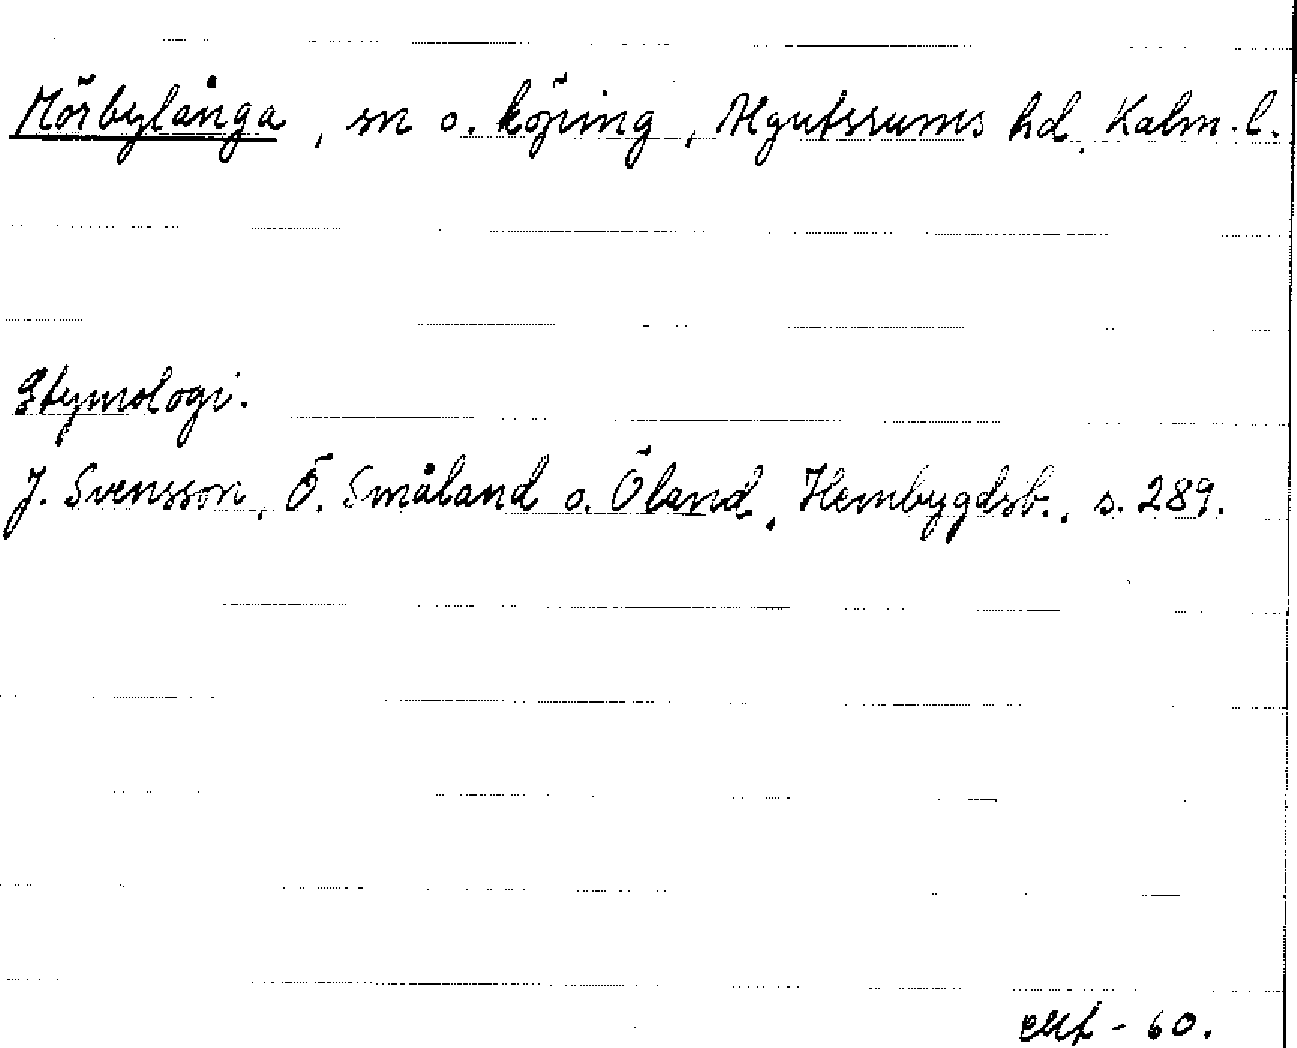 Mörbylånga, sn o. köping, Algutsrums hd, Kalm. l.
Etymologi.
J. Svensson, Ö. Småland o. Öland, Hembygdsb., s. 289.
- 60.